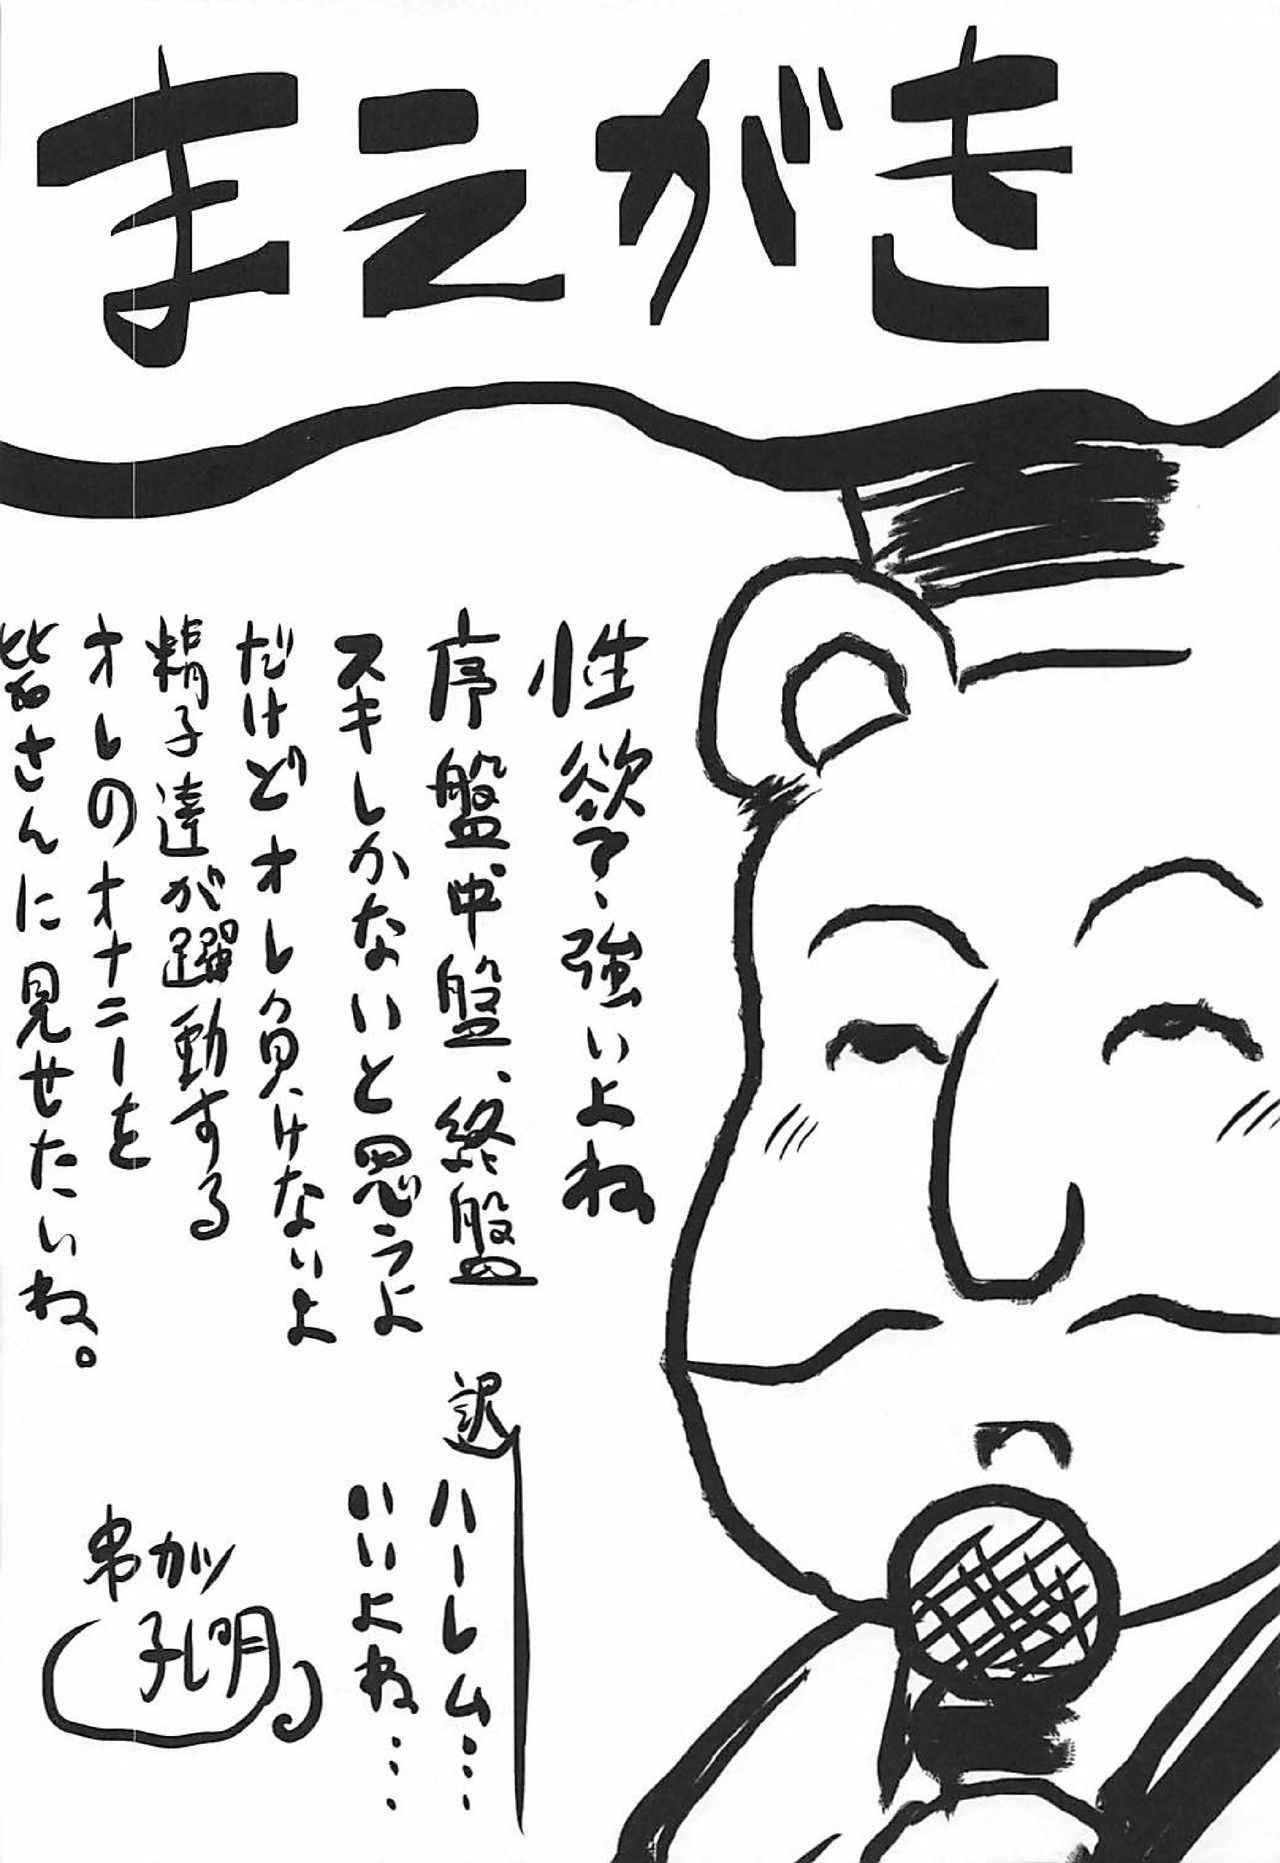 まえがき
性欲、強いよね
序盤、中盤、終盤
スキしかないと思うよ
だけどオレ負けないよ
精子達が躍動する
オレのオナニーを
皆さんに見せたいね。
訳
ハーレム…
いいよね…
串カツ
孔明